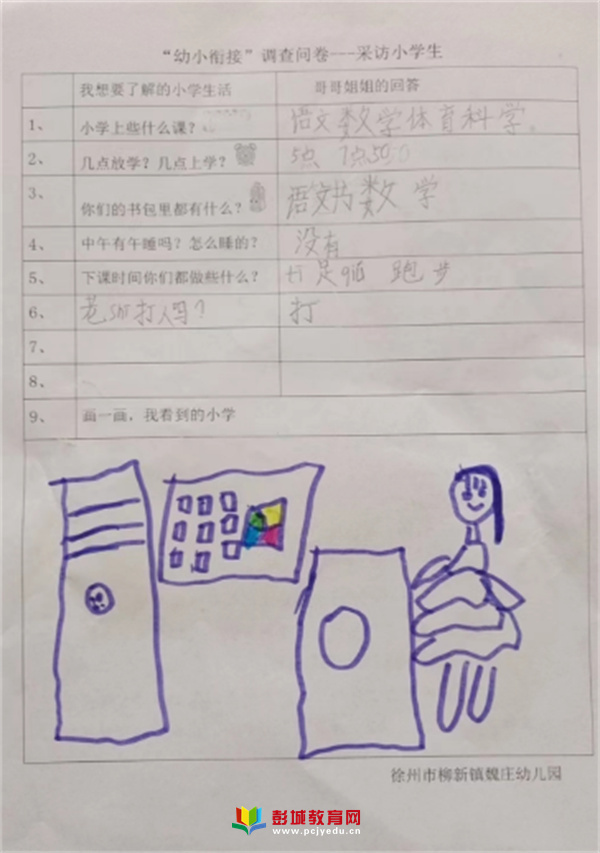 “幼小衔接”调查问卷---采访小学生
我想要了解的小学生活 哥哥姐姐的回答
1、 小学上些什么课? 语文数学体育科学。
2、 几点放学？几点上学? 5点 7点50
3、 你们的书包里都有什么? 语文书数学
4、 中午有午睡吗？怎么睡的? 没有
5、 下课时间你们都做些什么? 跑步
6、 老Shi打人吗? 打
7、
8、
9、 画一画，我看到的小学
徐州市柳新镇魏庄幼儿园
彭城教育网
www.pcjyedu.cn